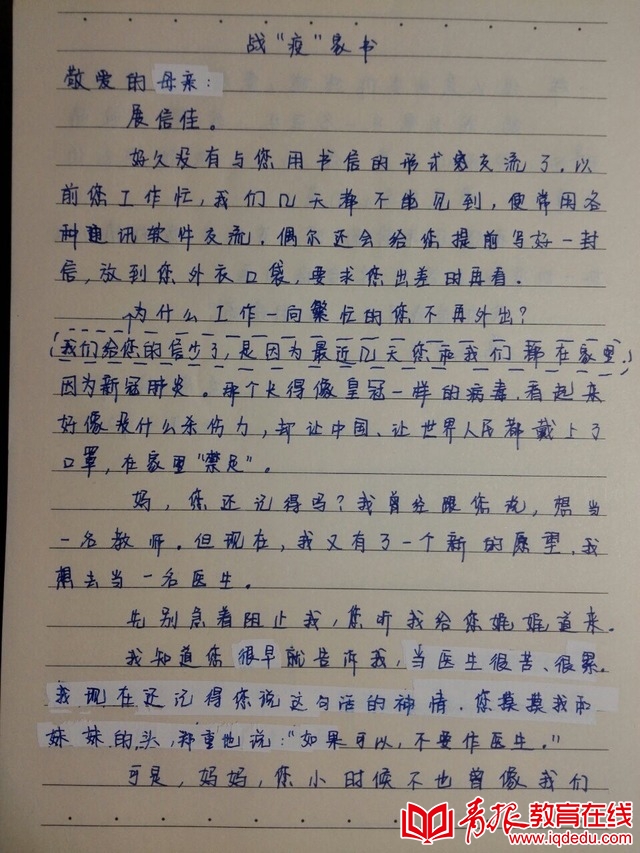 战“疫”家书
敬爱的母亲：
展信佳。
好久没有与您用书信的形式交流了，以
前您工作忙，我们几天都不能见到，便常用各
种通讯软件交流，偶尔还会给您提前写好一封
信，放到您外衣口袋，要求您出差时再看。
为什么工作一向繁忙的您不再外出？
我们给您的信少了，是因为最近几天您和我们都在家里，
因为新冠肺炎。那个长得像皇冠一样的病毒，看起来
好像没什么杀伤力，却让中国、让世界人民都戴上了
口罩，在家里“禁足”。
妈，您还记得吗？我曾经跟您说，想当
一名教师。但现在，我又有了一个新的愿望，我
想去当一名医生。
先别急着阻止我，您听我给您娓娓道来。
我知道您很早就告诉我，当医生很苦、很累。
我现在还记得您说这句话的神情，您摸摸我和
妹妹的头，郑重地说：“如果可以，不要作医生。”
可是，妈妈，您小时候不也曾像我们
青报教育在线
www.iqdedu.com